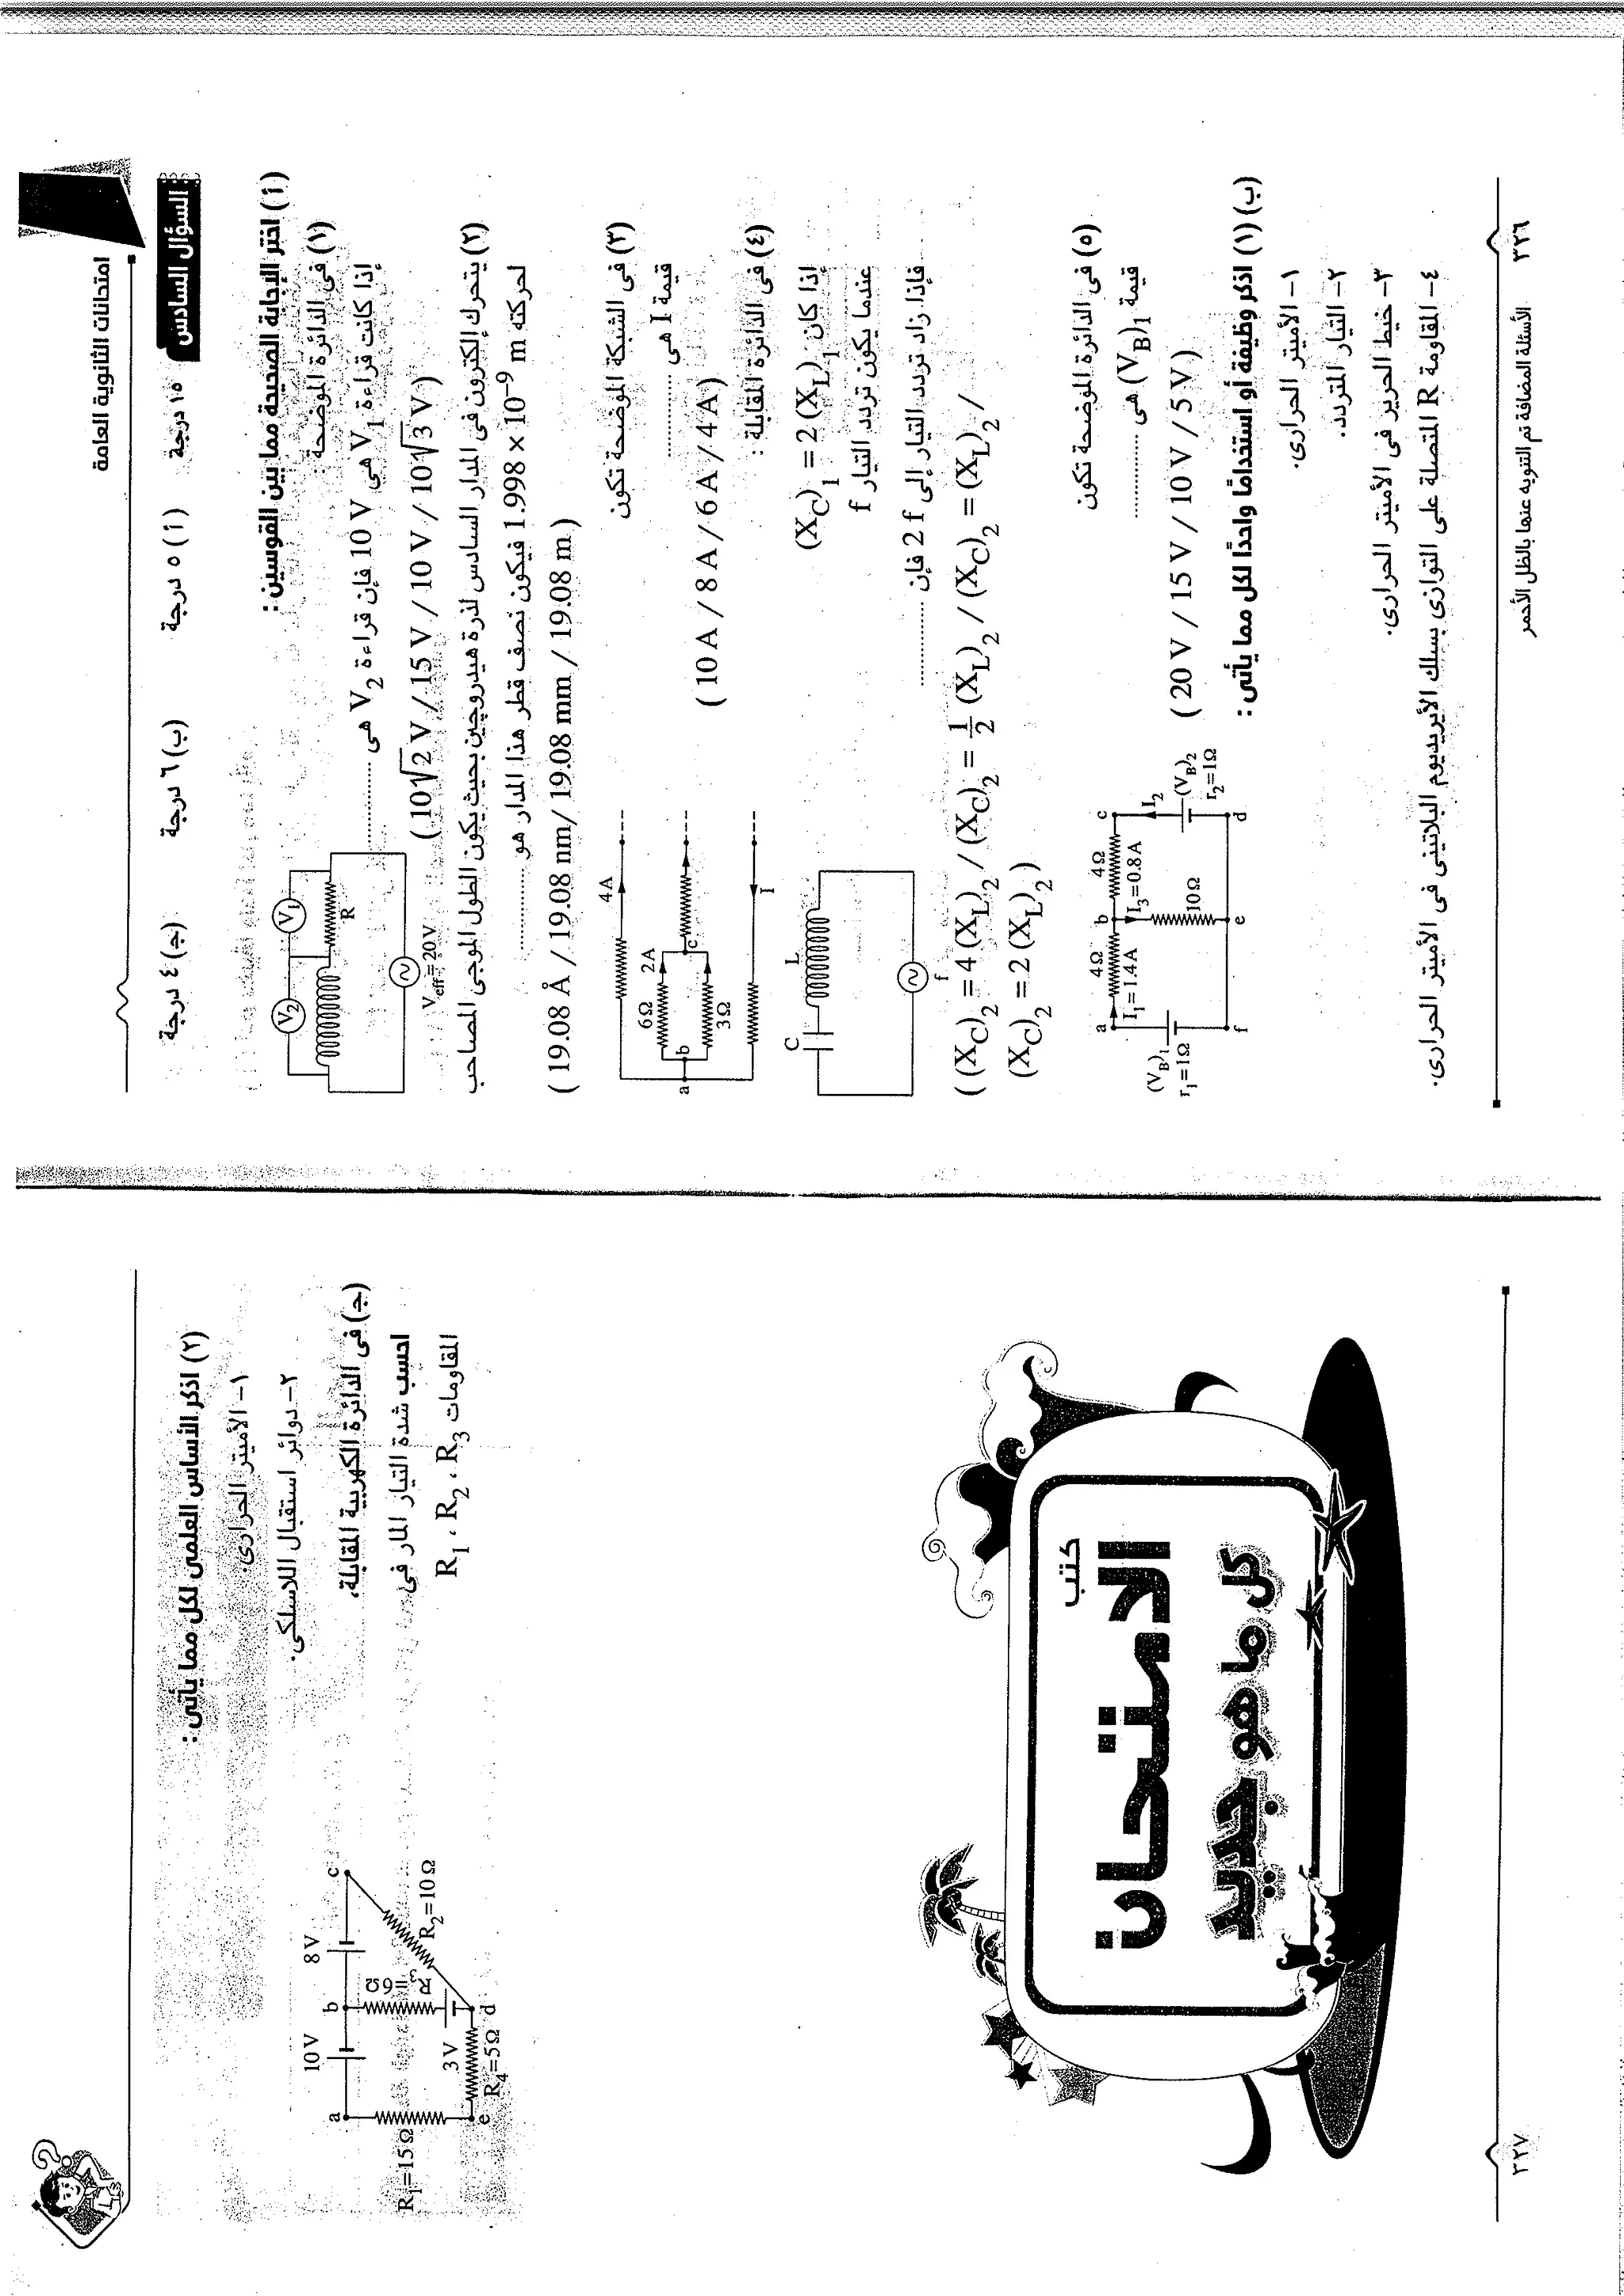 امتحانات الثانوية العامة
السؤال السادس ١٥ درجة (أ) ٥ درجة (ب) ٦ درجة (جـ) ٤ درجة
(أ) اختر الإجابة الصحيحة مما بين القوسين :
(١) فى الدائرة الموضحة :
إذا كانت قراءة V1 هى 10 V فإن قراءة V2 هى ............
( 10√2 V / 15 V / 10 V / 10√3 V )
V2
V1
R
Veff = 20 V
(٢) يتحرك إلكترون فى المدار السادس لذرة هيدروچين بحيث يكون الطول الموجى المصاحب
لحركته 1.998 × 10⁻⁹ m فيكون نصف قطر هذا المدار هو ............
( 19.08 Å / 19.08 nm / 19.08 mm / 19.08 m )
(٣) فى الشبكة الموضحة تكون
قيمة I هى ............
( 10 A / 8 A / 6 A / 4 A )
4A
6Ω 2A
a b c
3Ω
I
(٤) فى الدائرة المقابلة :
إذا كان (XC)1 = 2 (XL)1
عندما يكون تردد التيار f
فإذا زاد تردد التيار إلى 2 f فإن ............
( (XC)2 = 4 (XL)2 / (XC)2 = ½ (XL)2 / (XC)2 = (XL)2 /
(XC)2 = 2 (XL)2 )
C L
f
(٥) فى الدائرة الموضحة تكون
قيمة (VB)1 هى ............
( 20 V / 15 V / 10 V / 5 V )
a 4Ω b 4Ω c
I1 = 1.4A I3 = 0.8A I2
(VB)1 10Ω (VB)2
r1=1Ω r2=1Ω
f e d
(ب) (١) اذكر وظيفة أو استخدامًا واحدًا لكل مما يأتى :
١- الأميتر الحرارى.
٢- التيار المتردد.
٣- خيط الحرير فى الأميتر الحرارى.
٤- المقاومة R المتصلة على التوازى بسلك الأيريديوم البلاتينى فى الأميتر الحرارى.
٣٢٦ الأسئلة المضافة تم التنويه عنها بالظل الأحمر
(٢) اذكر الأساس العلمى لكل مما يأتى :
١- الأميتر الحرارى.
٢- دوائر استقبال اللاسلكى.
(جـ) فى الدائرة الكهربية المقابلة،
احسب شدة التيار المار فى
المقاومات R1 ، R2 ، R3
10V 8V
a b c
R1=15Ω
R3=6Ω
R2=10Ω
3V
e d
R4=5Ω
كتب
الامتحان
كل ما هو جديد
٣٢٧